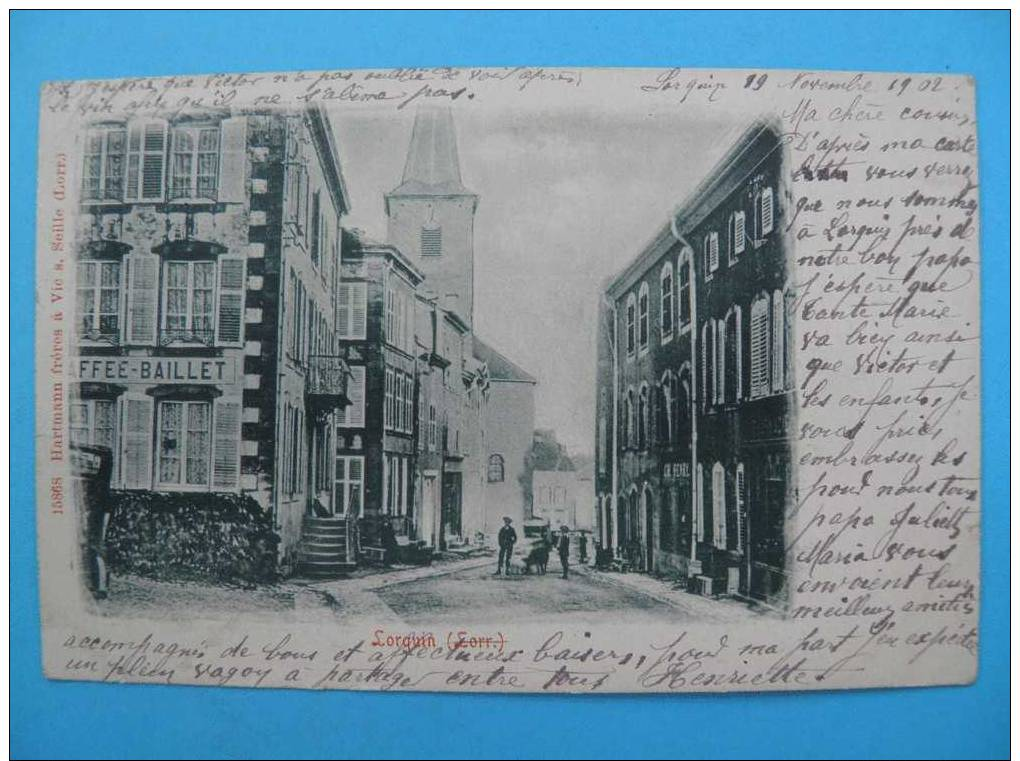 J'espère que Victor n'a pas oublié de voir après
le vin afin qu'il ne s'abîma pas.
Lorquin 19 Novembre 1902
Ma chère cousine
D'après ma carte
vous verrez
que nous sommes
à Lorquin près de
notre bon papa
J'espère que
Tante Marie
va bien ainsi
que Victor et
les enfants, je
vous prie
embrassez les
pour nous tous
papa Juliette
Maria vous
envoient leurs
meilleurs amitiés
accompagnés de bons et affectueux baisers, pour ma part j'en expédie
un plein vagon à partager entre tous Henriette
15868 Hartmann frères à Vic s. Seille (Lorr.)
AFFEE-BAILLET
CH. HENRY
Lorquin (Lorr.)